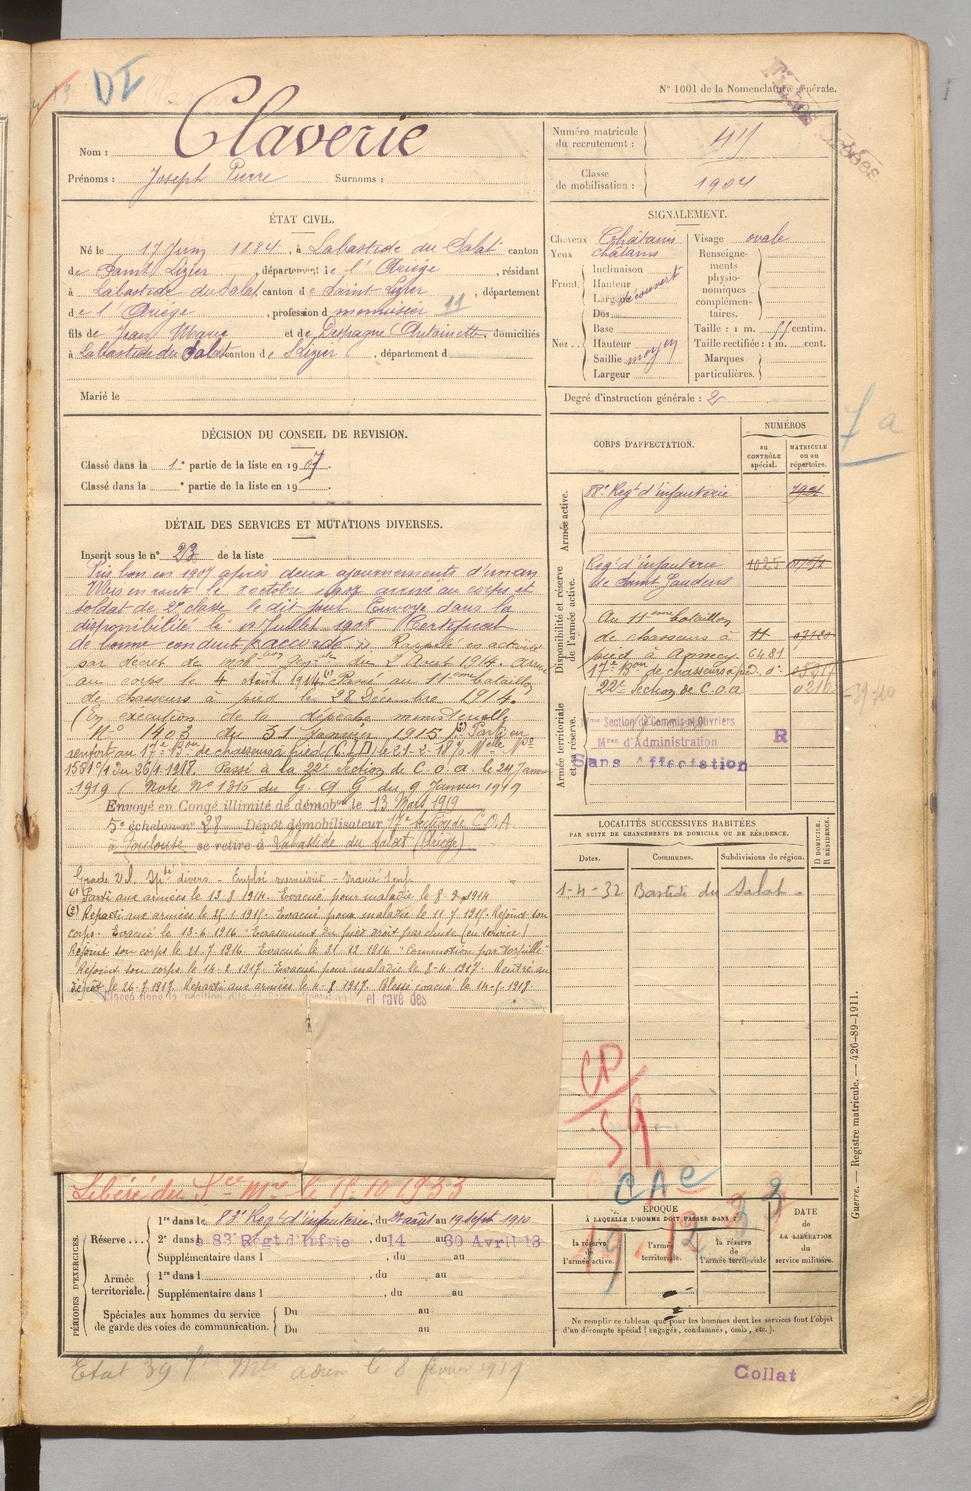 DI
N° 1001 de la Nomenclature générale.
Nom : Claverie
Prénoms : Joseph Pierre Surnoms :
Numéro matricule du recrutement :
Classe de mobilisation : 1904
ÉTAT CIVIL.
Né le 17 Juin 1884, à Labastide du Salat canton
de Saint Lizier, département de l'Ariège, résidant
à Labastide du Salat canton de Saint Lizier, département
de l'Ariège, profession de menuisier 11
fils de Jean Marie et de Despagne Antoinette, domiciliés
à Labastide du Salat canton de St Lizier, département d
Marié le
SIGNALEMENT.
Cheveux Châtains Visage ovale
Yeux châtains Renseignements physionomiques complémentaires.
Front. Inclinaison
Hauteur
Largeur découvert
Nez. Dos Taille : 1 m. 55 centim.
Base
Hauteur Taille rectifiée : 1 m. cent.
Saillie moyen Marques particulières.
Largeur
Degré d'instruction générale : 2
DÉCISION DU CONSEIL DE REVISION.
Classé dans la 1e partie de la liste en 1907.
Classé dans la e partie de la liste en 19 .
CORPS D'AFFECTATION.
NUMÉROS
au CONTRÔLE spécial.
MATRICULE ou au répertoire.
Armée active.
88e Régt d'infanterie
Disponibilité et réserve de l'armée active.
Régt d'infanterie
de Saint Gaudens 1025
Au 11ème bataillon
de chasseurs à 11
pied à Annecy 6481
17e Bon de chasseurs à p.
22e Section de C.O.A
Armée territoriale et sa réserve.
Section de Commis et Ouvriers
Mres d'Administration R
Sans Affectation
DÉTAIL DES SERVICES ET MUTATIONS DIVERSES.
Inscrit sous le n° 23 de la liste
Pris bon en 1907 après deux ajournements d'un an
Mis en route le 8 octobre 1907 arrivé au corps et
soldat de 2e classe le dit jour. Envoyé dans la
disponibilité le 12 Juillet 1908 Certificat
de bonne conduite accordé. Rappelé en activité
par décret de mobon genle du 2 Août 1914. Arrivé
au corps le 4 Août 1914 (1) Passé au 11ème bataillon
de chasseurs à pied le 28 Décembre 1914.
(En exécution de la dépêche ministérielle
N° 1403 du 31 Janvier 1915) (2) Parti en
renfort au 17e Bon de chasseurs à pied
du 26/4 1918. Passé à la 22e Section de C.O.A. le 24 Janvier
1919 (Note N° 1316 du G.Q.G du 9 Janvier 1919
Envoyé en Congé illimité de démobon le 13 Mars 1919
5e échelon no 28 Dépôt démobilisateur 17e section de C.O.A
à Toulouse se retire à Labastide du Salat (Ariège)
(1) Parti aux armées le 13.8.1914. Evacué pour maladie le 8.9.1914
(2) Reparti aux armées le 25.1.1915. Evacué pour maladie le 11.7.1915. Rejoint son
corps. Evacué le 13-6-1916 Ecrasement du pied droit par chute (en service)
Rejoint son corps le 21.7.1916. Evacué le 21.12.1916 "Commotion par torpille"
Rejoint son corps le 14.2.1917. Evacué pour maladie le 8-4-1917. Rentré au
dépôt le 26.7.1917. Reparti aux armées le 4.8.1917. Blessé évacué le 14-5.1918.
et rayé des
LOCALITÉS SUCCESSIVES HABITÉES
PAR SUITE DE CHANGEMENTS DE DOMICILE OU DE RÉSIDENCE.
Dates. Communes. Subdivisions de région. D DOMICILE. R RÉSIDENCE.
1-4-32 Bastide du Salat
CP/59
CAe
19 12 33
Libéré du Sce Mre le 15.10.1933
PÉRIODES D'EXERCICES.
Réserve... 1re dans le 83e Régt d'infanterie, du 24 août au 19 Sept 1910
2e dans le 83 Régt d'Infrie, du 14 au 30 Avril 13
Supplémentaire dans l , du au
Armée territoriale. 1re dans l , du au
Supplémentaire dans l , du au
Spéciales aux hommes du service de garde des voies de communication. Du au
Du au
ÉPOQUE
À LAQUELLE L'HOMME DOIT PASSER DANS :
la réserve de l'armée active.
l'armée territoriale.
la réserve de l'armée territoriale
DATE DE LA LIBÉRATION du service militaire.
Ne remplir ce tableau que pour les hommes dont les services font l'objet
d'un décompte spécial (engagés, condamnés, omis, etc.).
Guerre. — Registre matricule. — 426-89-1911.
Collat